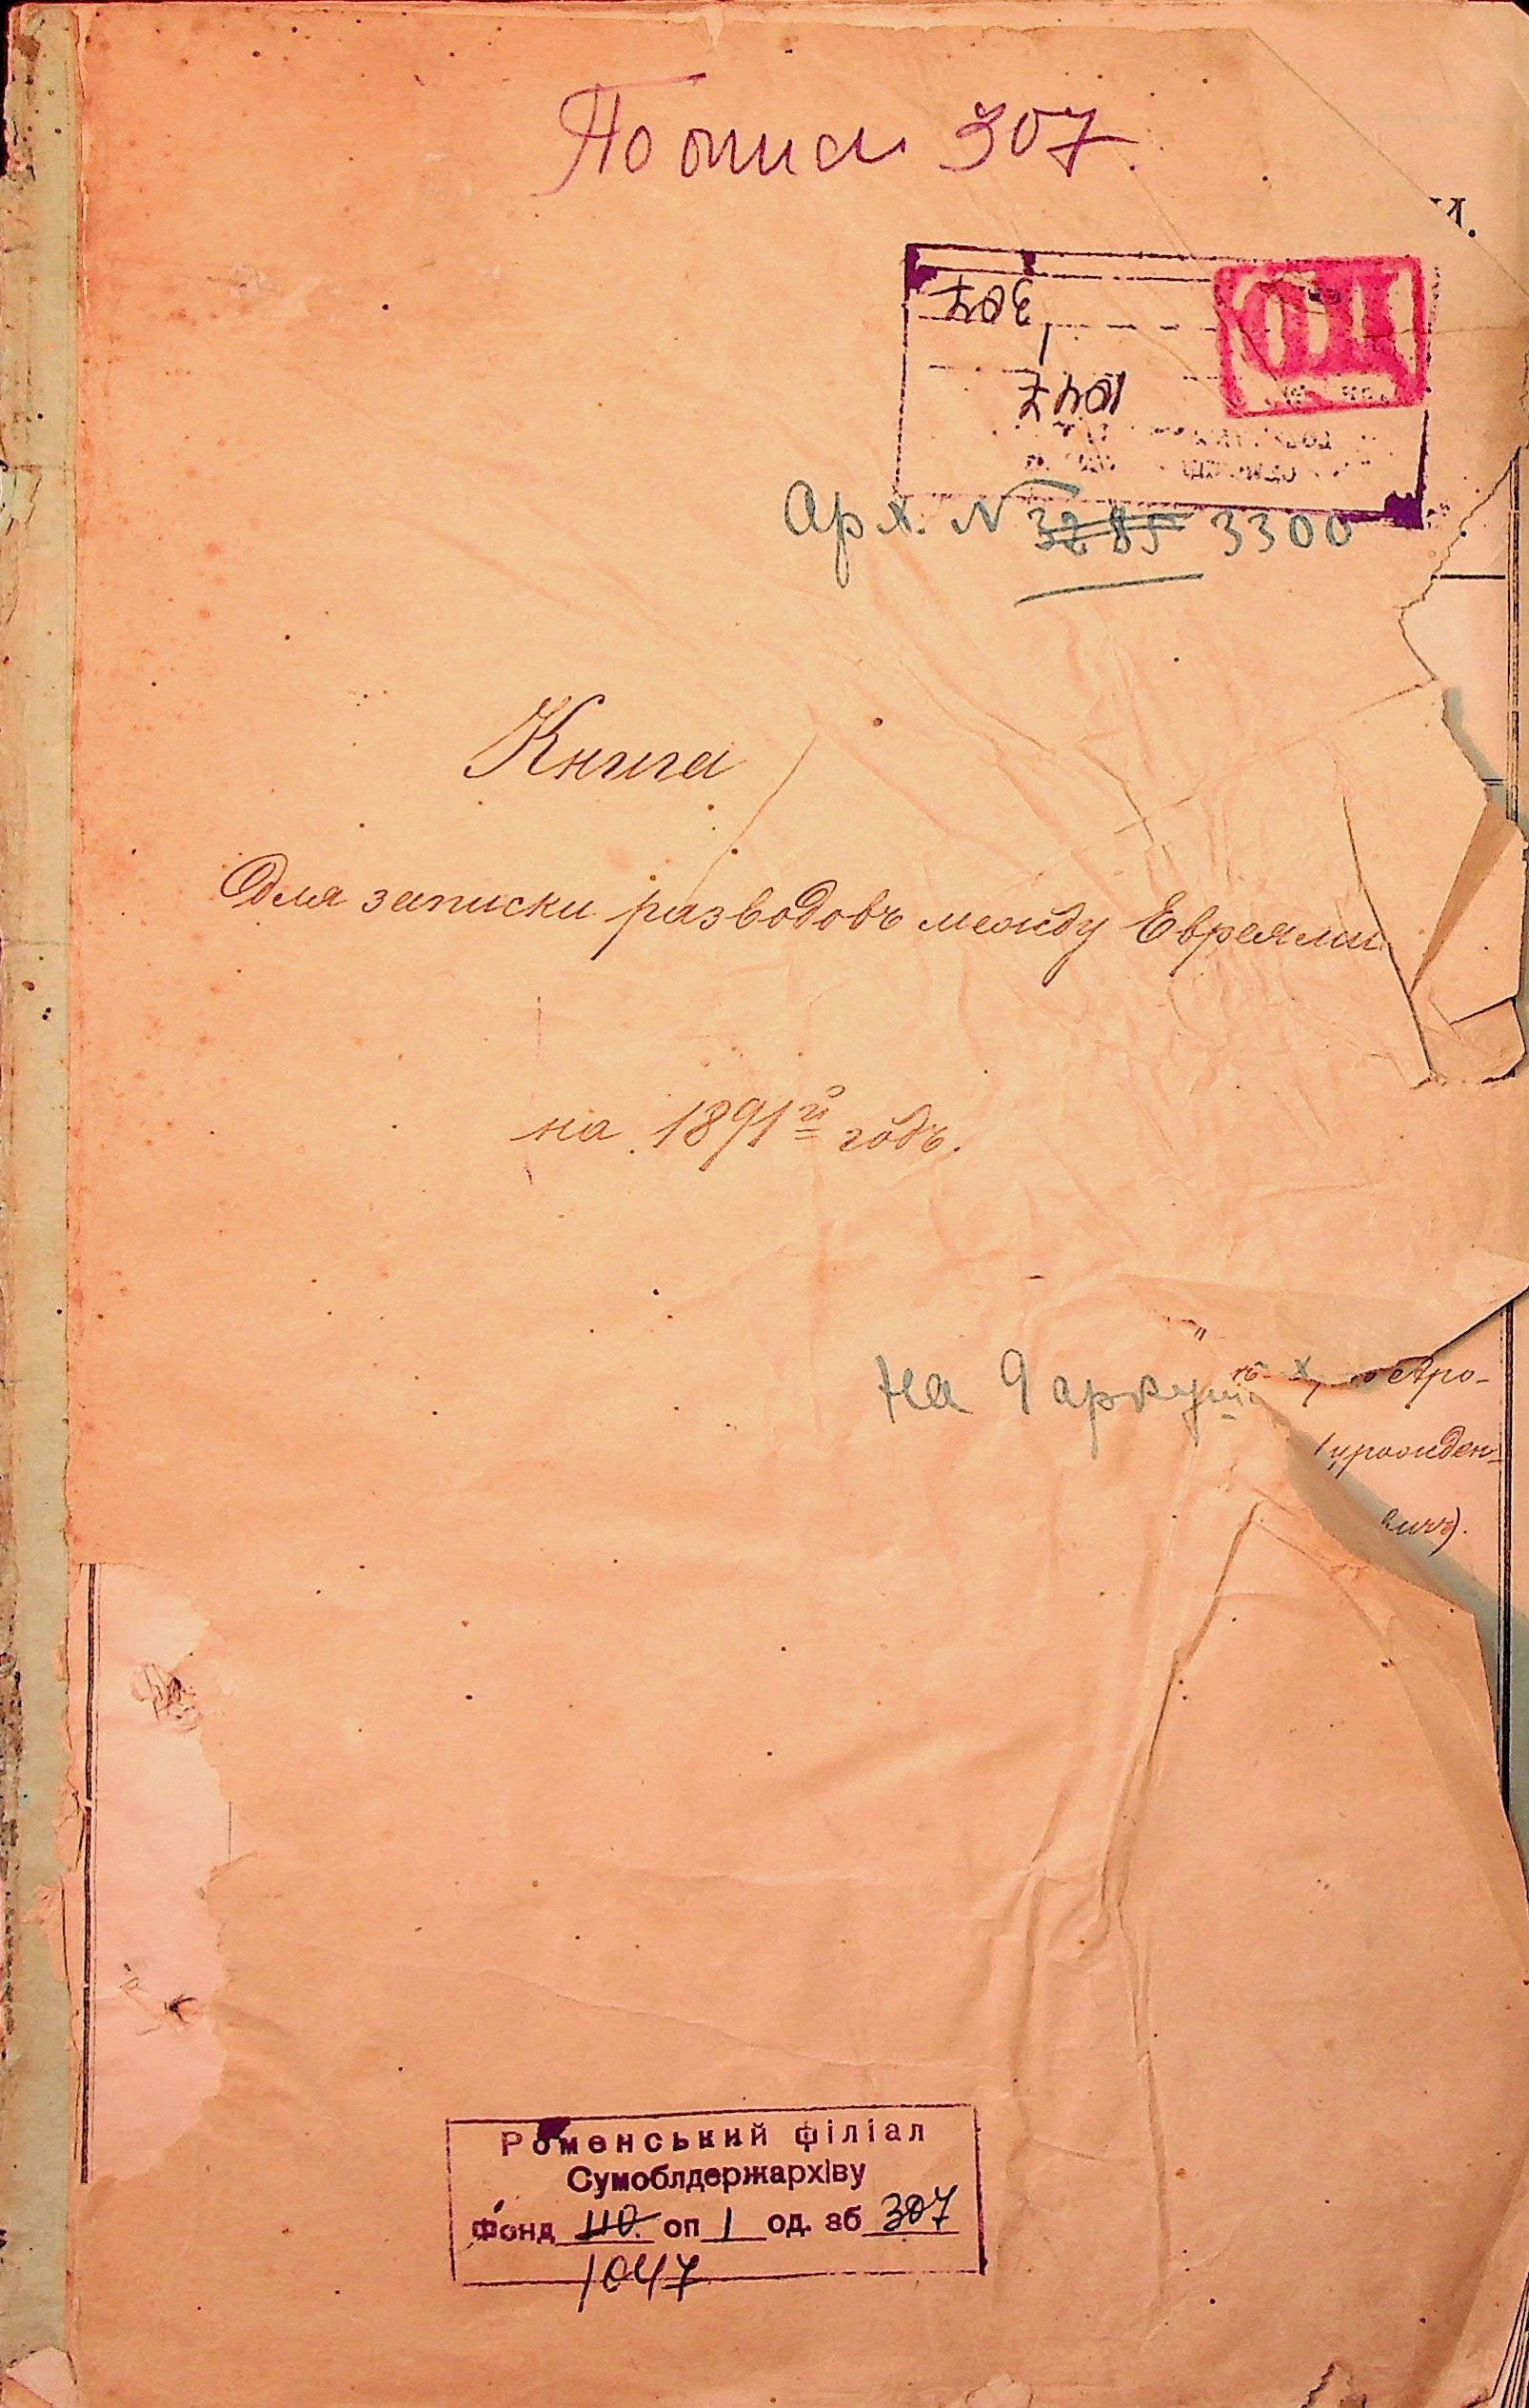 По описи 307
И.
307
1
1047
ОЦ
Арх. № 3285 3300
Книга
Для записки разводовъ между Евреями
на 1891й годъ.
на 9 аркуш
Аро-
урожден-
вичъ).
Роменський філіал
Сумоблдержархіву
Фонд 110 оп 1 од. зб 307
1047